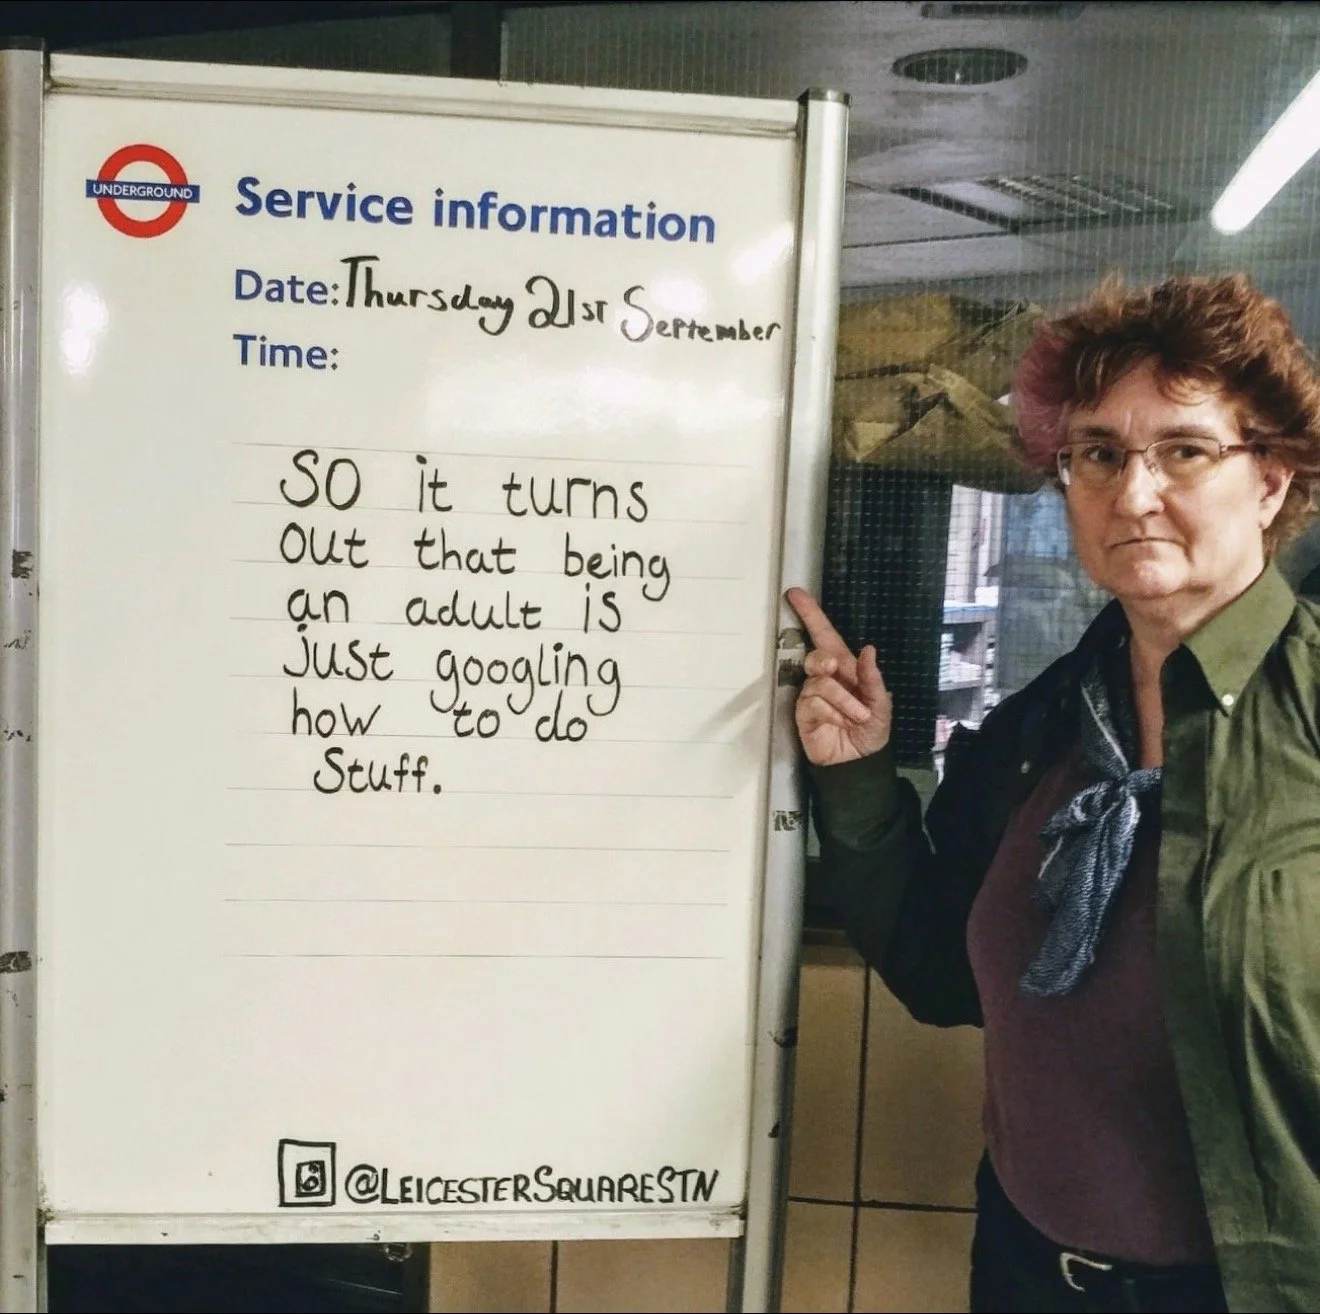 UNDERGROUND
Service information
Date: Thursday 21st September
Time:
SO it turns
out that being
an adult is
just googling
how to do
Stuff.
@LEICESTERSQUARESTN